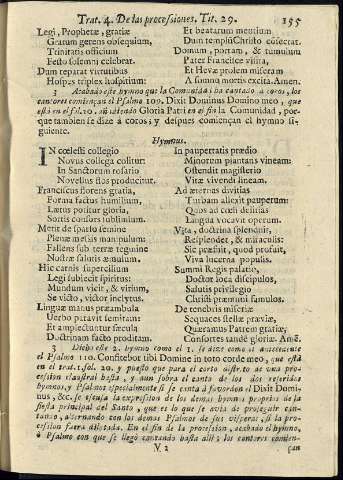 Trat. 4. De las procesiones, Tit. 29. 155
Legi, Prophetæ, gratiæ
Gratum gerens obsequium,
Trinitatis officium
Festo solemni celebrat.
Dum reparat virtutibus
Hospes triplex hospitium:
Et beatarum mentium
Dum templũ Christo cõsecrat.
Domum, portam, & tumulum
Pater Franciscè visita,
Et Hevæ prolem miseram
A somno mortis excita. Amen.
3 Acabado este hymno que la Comunidad ha cantado à coros, los
cantores comiençan el Psalmo 109. Dixit Dominus Domino meo, que
està en el fol. 20. añ Gloria Patri en el fin la Comunidad, por-
que tambien se dize à coros; y despues comiençan el hymno si-
guiente.
Hymnus.
IN cœlesti collegio
Novus collega colitur:
In Sanctorum rosario
Novellus flos producitur.
Francisci florens gratia,
Forma factus humilium,
Lætus potitur gloria,
Sortis consors sublimium.
Metit de sparto semine
Plenæ messis manipulum:
Fallens sub terræ tegmine
Nostræ salutis æmulum.
Hic carnis supercilium
Legi subiecit spiritus:
Mundum vicit, & vitium,
Se victo, victor inclytus.
Linguæ matris præambula
Verbo paravit semitam:
Et amplectuntur sæcula
Doctrinam facto proditam.
In paupertatis prædio
Minorum plantans vineam:
Ostendit magisterio
Vitæ vivendi lineam.
Ad æternas divitias
Turbam allexit pauperum:
Quos ad cœli delitias
Lingua vocavit operum.
Vita, doctrina splenduit,
Resplendet, & miraculis:
Sic præfuit, quod profuit,
Viva lucerna populis.
Summi Regis palatio,
Doctor loca discipulos,
Salutis privilegio
Christi præmuni famulos.
De tenebris miseriæ
Sequaces stellæ præviæ,
Quæramus Patrem gratiæ,
Consortes tandè gloriæ. Amẽ.
3 Dicho este 2. hymno como el 1. se dize como el antecedente
el Psalmo 110. Confitebor tibi Domine in toto corde meo, que està
en el trat. 1. fol. 20. y puesto que para el corto distrito de una pro-
cession claustral basta, y aun sobra el canto de los dos referidos
hymnos, y Psalmos especialmente si se canta à favordon el Dixit Domi-
nus, &c. se escusa la expression de los demas hymnos proprios de la
fiesta principal del Santo, que es lo que se avia de proseguir can-
tando, alternando con los demas Psalmos de sus visperas, si la pro-
cession fuera dilatada. En el fin de la procession, acabado el hymno,
ò Psalmo con que se llegò cantando basta alli; los cantores comien-
V. 2 çan